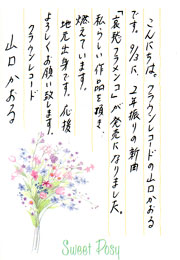 こんにちは。クラウンレコードの山口かおる
です。9/3に、2年振りの新曲
「哀愁フラメンコ」が発売になりました。
私らしい作品を頂き、
燃えています。
地元出身です。応援
よろしくお願い致します。
クラウンレコード
山口かおる
Sweet Posy